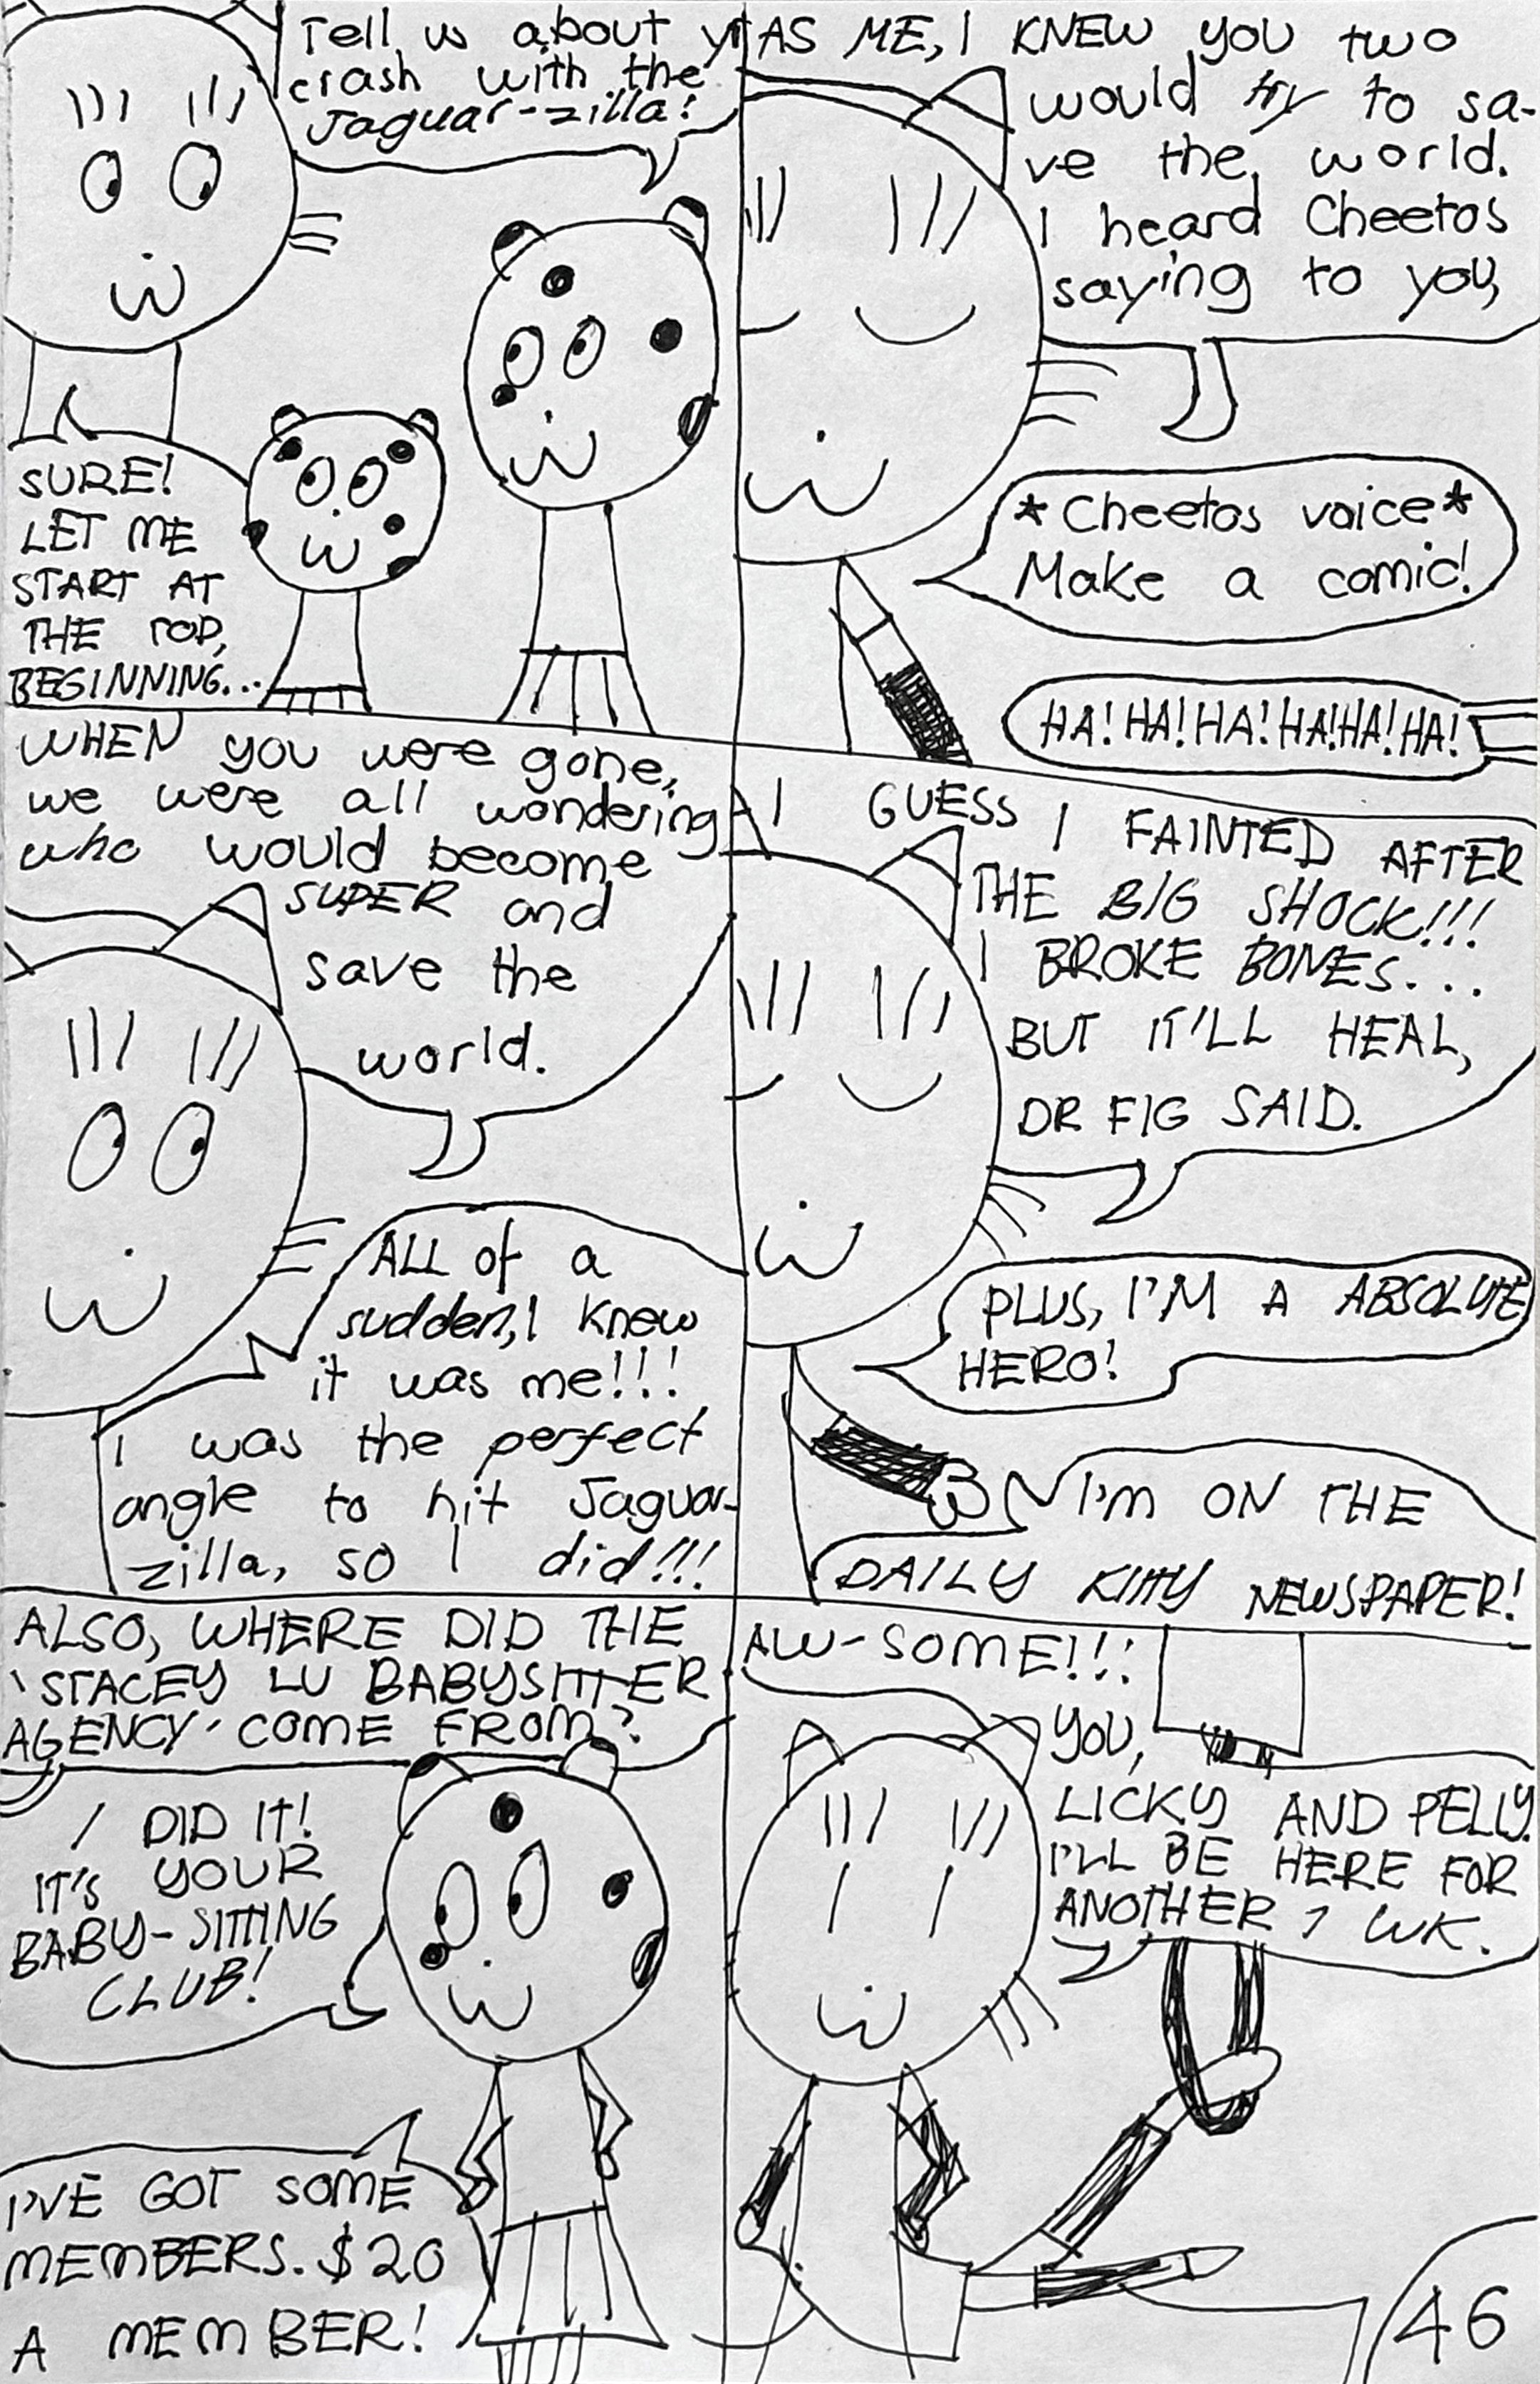 Tell us about y
crash with the
Jaguar-zilla!
SURE!
LET ME
START AT
THE TOP,
BEGINNING...
AS ME, I KNEW YOU two
would try to sa-
ve the world.
I heard Cheetos
saying to you,
*Cheetos voice*
Make a comic!
HA! HA! HA! HA! HA! HA!
WHEN you were gone,
we were all wondering
who would become
SUPER and
save the
world.
ALL of a
sudden, I knew
it was me!!!
I was the perfect
angle to hit Jaguar-
zilla, so I did!!!
I GUESS I FAINTED AFTER
THE BIG SHOCK!!!
I BROKE BONES...
BUT IT'LL HEAL,
DR FIG SAID.
PLUS, I'M A ABSOLUTE
HERO!
I'm ON THE
DAILY KITTY NEWSPAPER!
ALSO, WHERE DID THE
'STACEY LU BABYSITTER
AGENCY' COME FROM?
I DID IT!
IT'S YOUR
BABY-SITTING
CLUB!
I'VE GOT SOME
MEMBERS. $20
A MEMBER!
AW-SOME!!!
YOU,
LICKY AND PELLY.
I'LL BE HERE FOR
ANOTHER 1 WK.
46